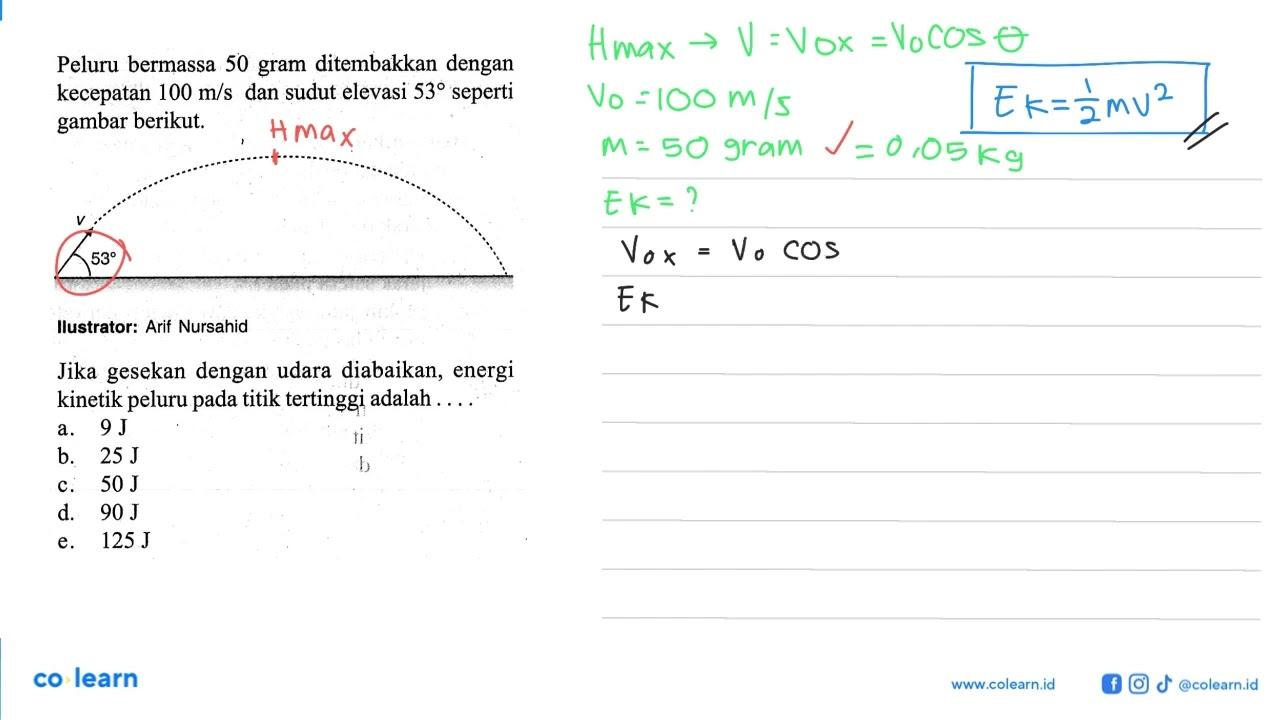 Peluru bermassa 50 gram ditembakkan dengan
kecepatan 100 m/s dan sudut elevasi 53° seperti
gambar berikut.
Hmax
v
53°
Ilustrator: Arif Nursahid
Jika gesekan dengan udara diabaikan, energi
kinetik peluru pada titik tertinggi adalah . . . .
a. 9 J
b. 25 J
c. 50 J
d. 90 J
e. 125 J
ti
b
Hmax → V = Vox = Vo cos θ
Vo = 100 m/s
Ek = 1/2 mv²
m = 50 gram ✓ = 0,05 kg
Ek = ?
Vox = Vo cos
Ek
co learn
www.colearn.id
@colearn.id